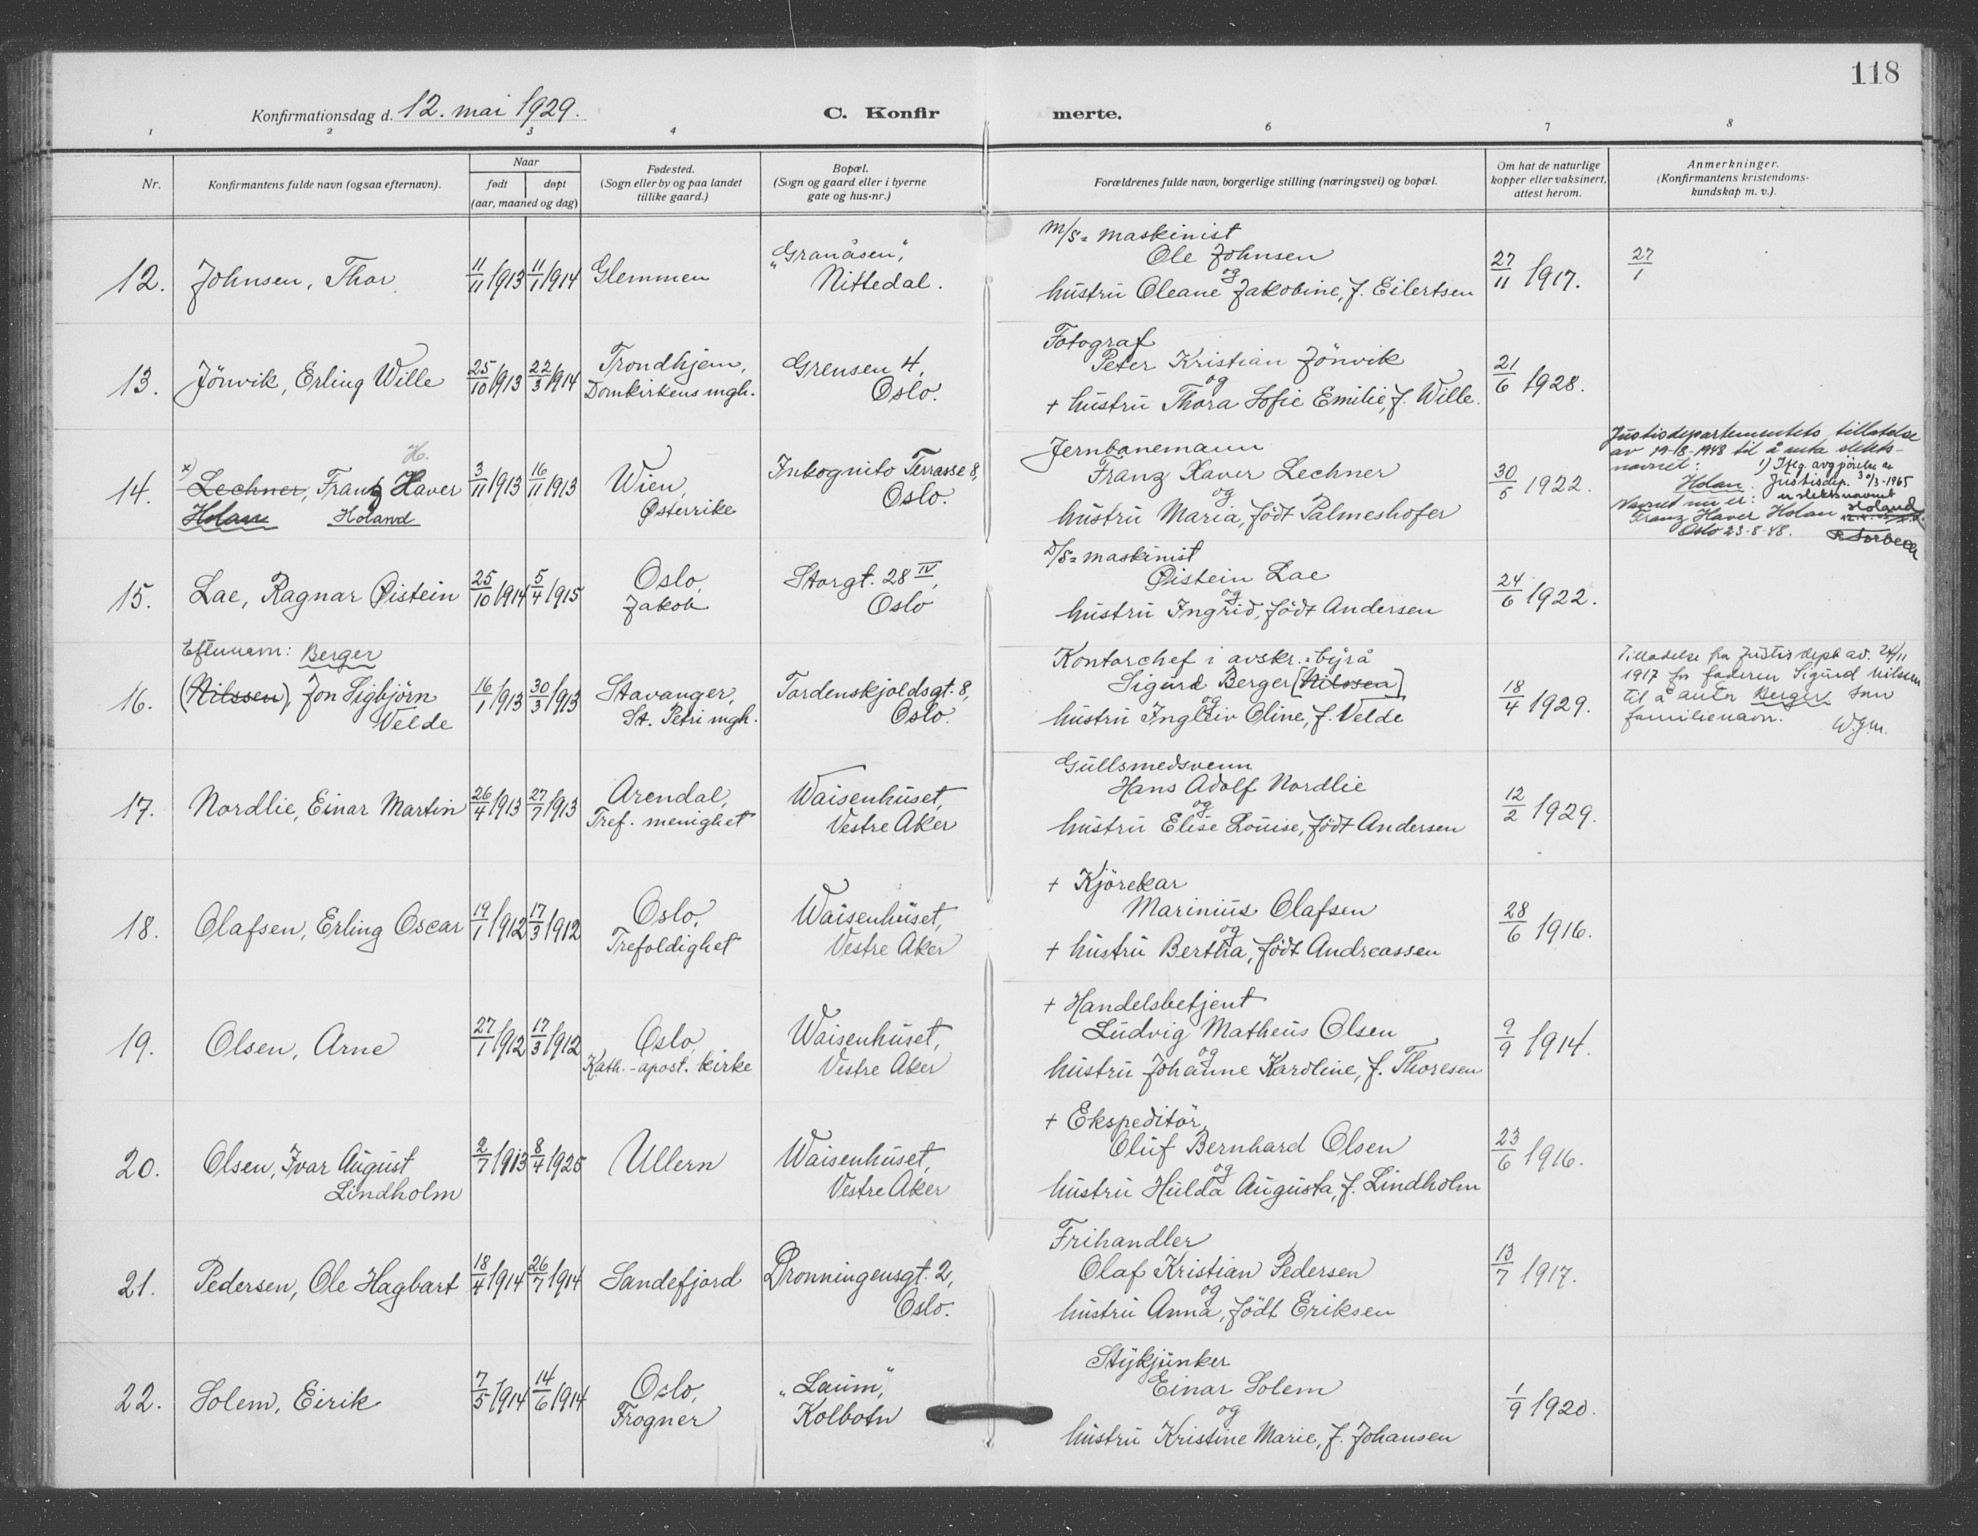 118
Konfirmationsdag d. 12. mai 1929.
C. Konfir merte.
1 2 3 4 6 7 8
Nr.
Konfirmantens fulde navn (ogsaa efternavn).
Naar
født døpt
(aar, maaned og dag)
Fødested.
(Sogn eller by og paa landet
tillike gaard.)
Bopæl.
(Sogn og gaard eller i byerne
gate og hus-nr.)
Forældrenes fulde navn, borgerlige stilling (næringsvei) og bopæl.
Om hat de naturlige
kopper eller vaksinert,
attest herom.
Anmerkninger.
(Konfirmantens kristendoms-
kundskap m. v.).
12. Johnsen, Thor 11/11 1913 11/1 1914 Glemmen
"Granåsen",
Nittedal.
m/s = maskinist
Ole Johnsen
og
hustru Oleane Jakobine, f. Eilertsen
27/11 1917.
27/1
13. Jönvik, Erling Wille 25/10 1913 22/3 1914
Trondhjem,
Domkirkens mgh.
Grensen 4,
Oslo.
Fotograf
Peter Kristian Jönvik
og
+ hustru Thora Sofie Emilie, f. Wille.
21/6 1928.
H.
14. x) Lechner, Franz Xaver 3/11 1913 16/11 1913
Holan Holand
Wien,
Østerrike
Inkognito Terrasse 8,
Oslo.
Jernbanemann
Franz Xaver Lechner
og
hustru Maria, födt Palmeshofer
30/5 1922.
Justisdepartementets tillatelse
av 19-18-1948 til å anta slekts-
navnet:
Holan
Navnet nu er:
Franz Haver Holan
Oslo 23-8-48.
1) Iflg. avgjørelse av
Justisdep. 30/3-1965
er slektsnavnet
Holand
15. Lae, Ragnar Øistein 25/10 1914 5/4 1915
Oslo,
Jakob
Storgt. 28 IV,
Oslo
D/s = maskinist
Øistein Lae
og
hustru Ingrid, födt Andersen
24/6 1922.
Efternavn: Berger
16. (Nilssen), Jon Sigbjörn
Velde
16/1 1913 30/3 1913
Stavanger,
St. Petri mgh.
Tordenskjoldsgt. 8,
Oslo.
Kontorchef i avskr.-byrå
Sigurd Berger [Nilssen]
og
hustru Ingleiv Oline, f. Velde
18/4 1929.
Tilladelse fra Justisdept av. 24/11
1917 for faderen Sigurd Nilssen
til å anta Berger som
familienavn.
W.J.M.
17. Nordlie, Einar Martin 26/4 1913 27/7 1913
Arendal,
Tref. menighet
Waisenhuset,
Vestre Aker
Gullsmedsvenn
Hans Adolf Nordlie
og
hustru Elise Louise, födt Andersen
12/2 1929.
18. Olafsen, Erling Oscar 19/1 1912 17/3 1912
Oslo,
Trefoldighet
Waisenhuset,
Vestre Aker
+ Kjörekar
Marinius Olafsen
og
+ hustru Bertha, födt Andreassen
28/6 1916.
19. Olsen, Arne 27/1 1912 17/3 1912
Oslo,
Kath.-apost. kirke
Waisenhuset,
Vestre Aker
+ Handelsbetjent
Ludvig Matheus Olsen
og
hustru Johanne Karoline, f. Thoresen
9/9 1914.
20. Olsen, Ivar August
Lindholm
2/7 1913 8/4 1925
Ullern
Waisenhuset,
Vestre Aker
+ Ekspeditör
Oluf Bernhard Olsen
og
hustru Hulda Augusta, f. Lindholm
23/6 1916.
21. Pedersen, Ole Hagbart 18/4 1914 26/7 1914
Sandefjord
Dronningensgt. 2,
Oslo.
Frihandler
Olaf Kristian Pedersen
og
hustru Anna, födt Eriksen
13/7 1917.
22. Solem, Eirik 7/5 1914 14/6 1914
Oslo,
Frogner
"Laum",
Kolbotn
Stykjunker
Einar Solem
og
hustru Kristine Marie, f. Johansen
1/9 1920.